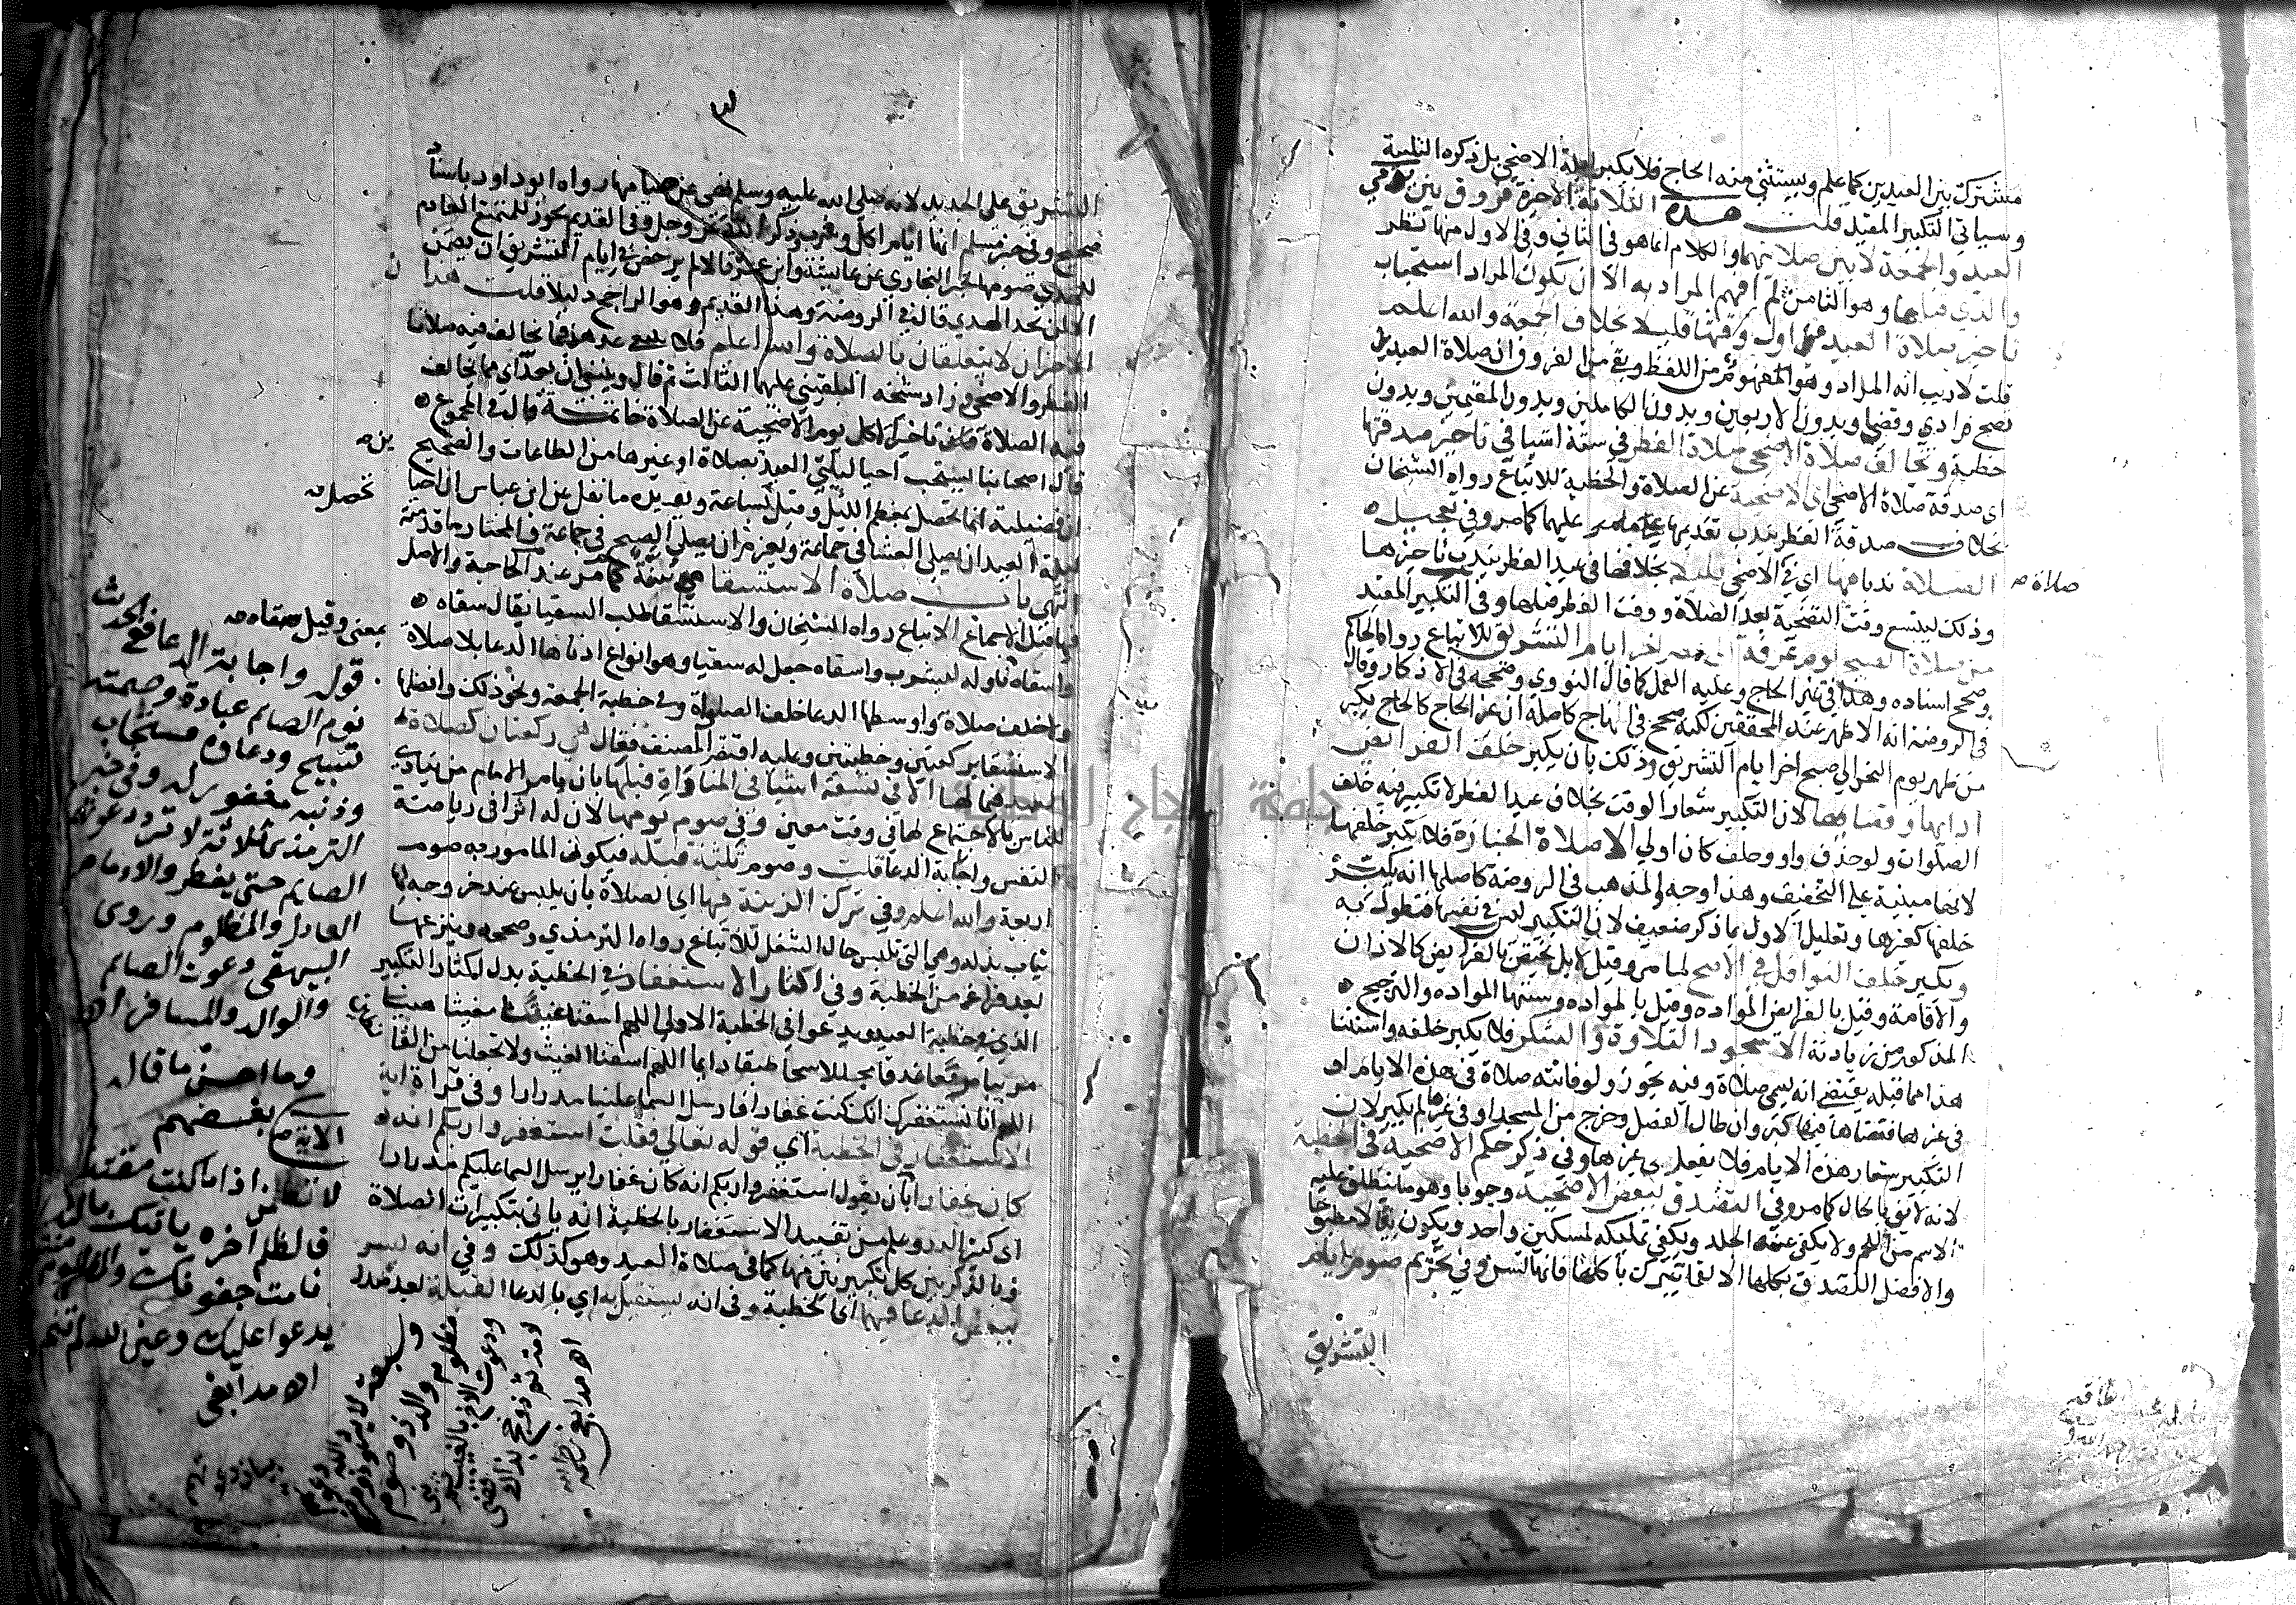 مشترك بين العيدين كما علم ويستثنى منه الحاج فلا يكبر ليلة الاضحى بل ذكره التلبية
وسياتي التكبير المقيد قلت هذه الثلاثة الاخيرة فروق بين يومي
العيد والجمعة لا بين صلاتيهما والكلام انما هو في الثاني وفي الاول منها نظر
والذي قبلها وهو الثامن لم افهم المراد به الا ان يكون المراد استحباب
تاخير صلاة العيد عن اول وقتها قليلا بخلاف الجمعة والله اعلم
قلت لا ريب انه المراد وهو المفهوم من اللفظ وبقي من الفروق ان صلاة العيدين
تصح فرادي وقضا وبدون الاربعين وبدون الكاملين وبدون المقيمين وبدون
خطبة وتخالف صلاة الاضحى صلاة الفطر في ستة اشيا في تاخير صدقتها
اي صدقة صلاة الاضحى اي الاضحية عن الصلاة والخطبة للاتباع رواه الشيخان
بخلاف صدقة الفطر يندب تقديمها عليهما كما مر وفي تعجيل
صلاة
الصلاة ندبا فيها اي في الاضحى قليلا بخلافها في عيد الفطر يندب تاخيرها
وذلك ليتسع وقت التضحية بعد الصلاة ووقت الفطر قبلها وفي التكبير المقيد
من صلاة الصبح يوم عرفة الى عصر اخر ايام التشريق للاتباع رواه الحاكم
وصحح اسناده وهذا في غير الحاج وعليه العمل كما قال النووي وصححه في الاذكار وقال
في الروضة انه الاظهر عند المحققين لكنه صحح في المنهاج كاصله ان غير الحاج كالحاج يكبر
من ظهر يوم النحر الى صبح اخر ايام التشريق وذلك بان يكبر خلف الفرايض
ادايها وقضايها لان التكبير شعار الوقت بخلاف عيد الفطر لا تكبير فيه خلف
الصلوات ولو حذف واو وخلف كان اولي الا صلاة الجنازة فلا يكبر خلفها
لانها مبنية على التخفيف وهذا وجه والمذهب في الروضة كاصلها انه يكبر
خلفها كغيرها وتعليل الاول بما ذكر ضعيف لان التكبير ليس في نفسها فتطول به
ويكبر خلف النوافل في الاصح لما مر وقيل لا بل يختص بالفرايض كالاذان
والاقامة وقيل بالفرايض المواده وقيل بالمواده وسننها المواده والترجيح
المذكور من زيادته الا سجود التلاوة والشكر فلا يكبر خلفه واستثنا
هذا مما قبله يقتضي انه يسمى صلاة وفيه تجوز ولو فاتته صلاة في هذه الايام او
في غيرها فقضاها فيها كبر وان طال الفصل وخرج من المسجد او في غيرها لم يكبر لان
التكبير شعار هذه الايام فلا يفعل في غيرها وفي ذكر حكم الاضحية في الخطبة
لانه لايق بالحال كما مر وفي التصدق ببعض الاضحية وجوبا وهو ما ينطلق عليه
الاسم من اللحم ولا يكفي عنه الجلد ويكفي تمليكه لمسكين واحد ويكون نيا لا مطبوخا
والافضل التصدق بكلها الا لقما يتبرك باكلها فانها تسن وفي تحريم صوم ايام
التشريق
التشريق على الجديد لانه صلى الله عليه وسلم نهى عن صيامها رواه ابو داود باسناد
صحيح وفي خبر مسلم انها ايام اكل وشرب وذكر الله عز وجل وفي القديم يجوز للمتمتع العادم
للهدي صومها لخبر البخاري عن عايشة وابن عمر قالا لم يرخص في ايام التشريق ان يصمن
الا لمن لم يجد الهدي قال في الروضة وهذا القديم هو الراجح دليلا قلت هذا ن
الاخيران لا يتعلقان بالصلاة والله اعلم فلا ينبغي عدهما فيما تخالف فيه صلاتا
الفطر والاضحى وزاد شيخه البلقيني عليها الثالث ثم قال وينبغي ان يعد اي مما يخالف
فيه الصلاة تاخير اكل يوم الاضحية عن الصلاة خاتمة قال في المجموع
قال اصحابنا يستحب احيا ليلتي العيدين بصلاة او غيرها من الطاعات والصحيح
ان فضيلته انما تحصل بمعظم الليل وقيل بساعة ويويده ما نقل عن ابن عباس ان احيا
تحصل
ليلة العيد ان يصلي العشا في جماعة ويعزم ان يصلي الصبح في جماعة والمختار ما قدمته
انتهى باب صلاة الاستسقا هي سنة كما مر عند الحاجة والاصل
فيها قبل الاجماع الاتباع رواه الشيخان والاستسقا طلب السقيا يقال سقاه
واسقاه بمعنى وقيل سقاه ناوله ليشرب واسقاه جعل له سقيا وهو انواع ادناها الدعا بلا صلاة
ولا خلف صلاة واوسطها الدعا خلف الصلواة وفي خطبة الجمعة ونحو ذلك وافضلها
الاستسقا بركعتين وخطبتين وعليه اقتصر المصنف فقال هي ركعتان كصلاة
العيد فيما لها الا في تسعة اشيا في المناداة قبلها بان يامر الامام من ينادي
للناس بالاجتماع لها في وقت معين وفي صوم يومها لان له اثرا في رياضة
النفس واجابة الدعا قلت وصوم ثلثة قبله فيكون المامور به صوم
اربعة والله اعلم وفي ترك الزينة فيها اي الصلاة بان يلبس عند خروجه لها
ثياب بذله وهي التي تلبس حال الشغل للاتباع رواه الترمذي وصححه وينزعها
بعد فراغه من الخطبة وفي اكثار الاستغفار في الخطبة بدل اكثار التكبير
الذي في خطبة العيد ويدعو في الخطبة الاولى اللهم اسقنا غيثا مغيثا هنيا
مريا مريعا غدقا مجللا سحا طبقا دايما اللهم اسقنا الغيث ولا تجعلنا من القا
نطين
اللهم انا نستغفرك انك كنت غفارا فارسل السما علينا مدرارا وفي قراة اية
الاستغفار في الخطبة اي قوله تعالى فقلت استغفروا ربكم انه
كان غفارا الاية بان يقول استغفروا ربكم انه كان غفارا يرسل السما عليكم مدرارا
اي كثير الدر وعلم من تقييد الاستغفار بالخطبة انه ياتي بتكبيرات الصلاة
وبالذكر بين كل تكبيرتين منها كما في صلاة العيد وهو كذلك وفي انه يسر
ببعض الدعا فيها اي الخطبة وفي انه يستقبل به اي بالدعا القبلة بعد صدر
قوله واجابة الدعا فقع الحديث
نوم الصائم عبادة وصمته
تسبيح ودعاوه مستجاب
وذنبه مغفور له وفي خبر
الترمذي ثلاثة لا ترد دعوتهم
الصايم حتى يفطر والامام
العادل والمظلوم وروى
البيهقي دعوت الصايم
والوالد والمسافر اهـ
وما احسن ما قال
بعضهم
لا تظلمن اذا ما كنت مقتدرا
فالظلم اخره ياتيك بالندم
نامت جفونك والمظلوم منتبه
يدعوا عليك وعين الله لم تنم
اهـ مدابغي